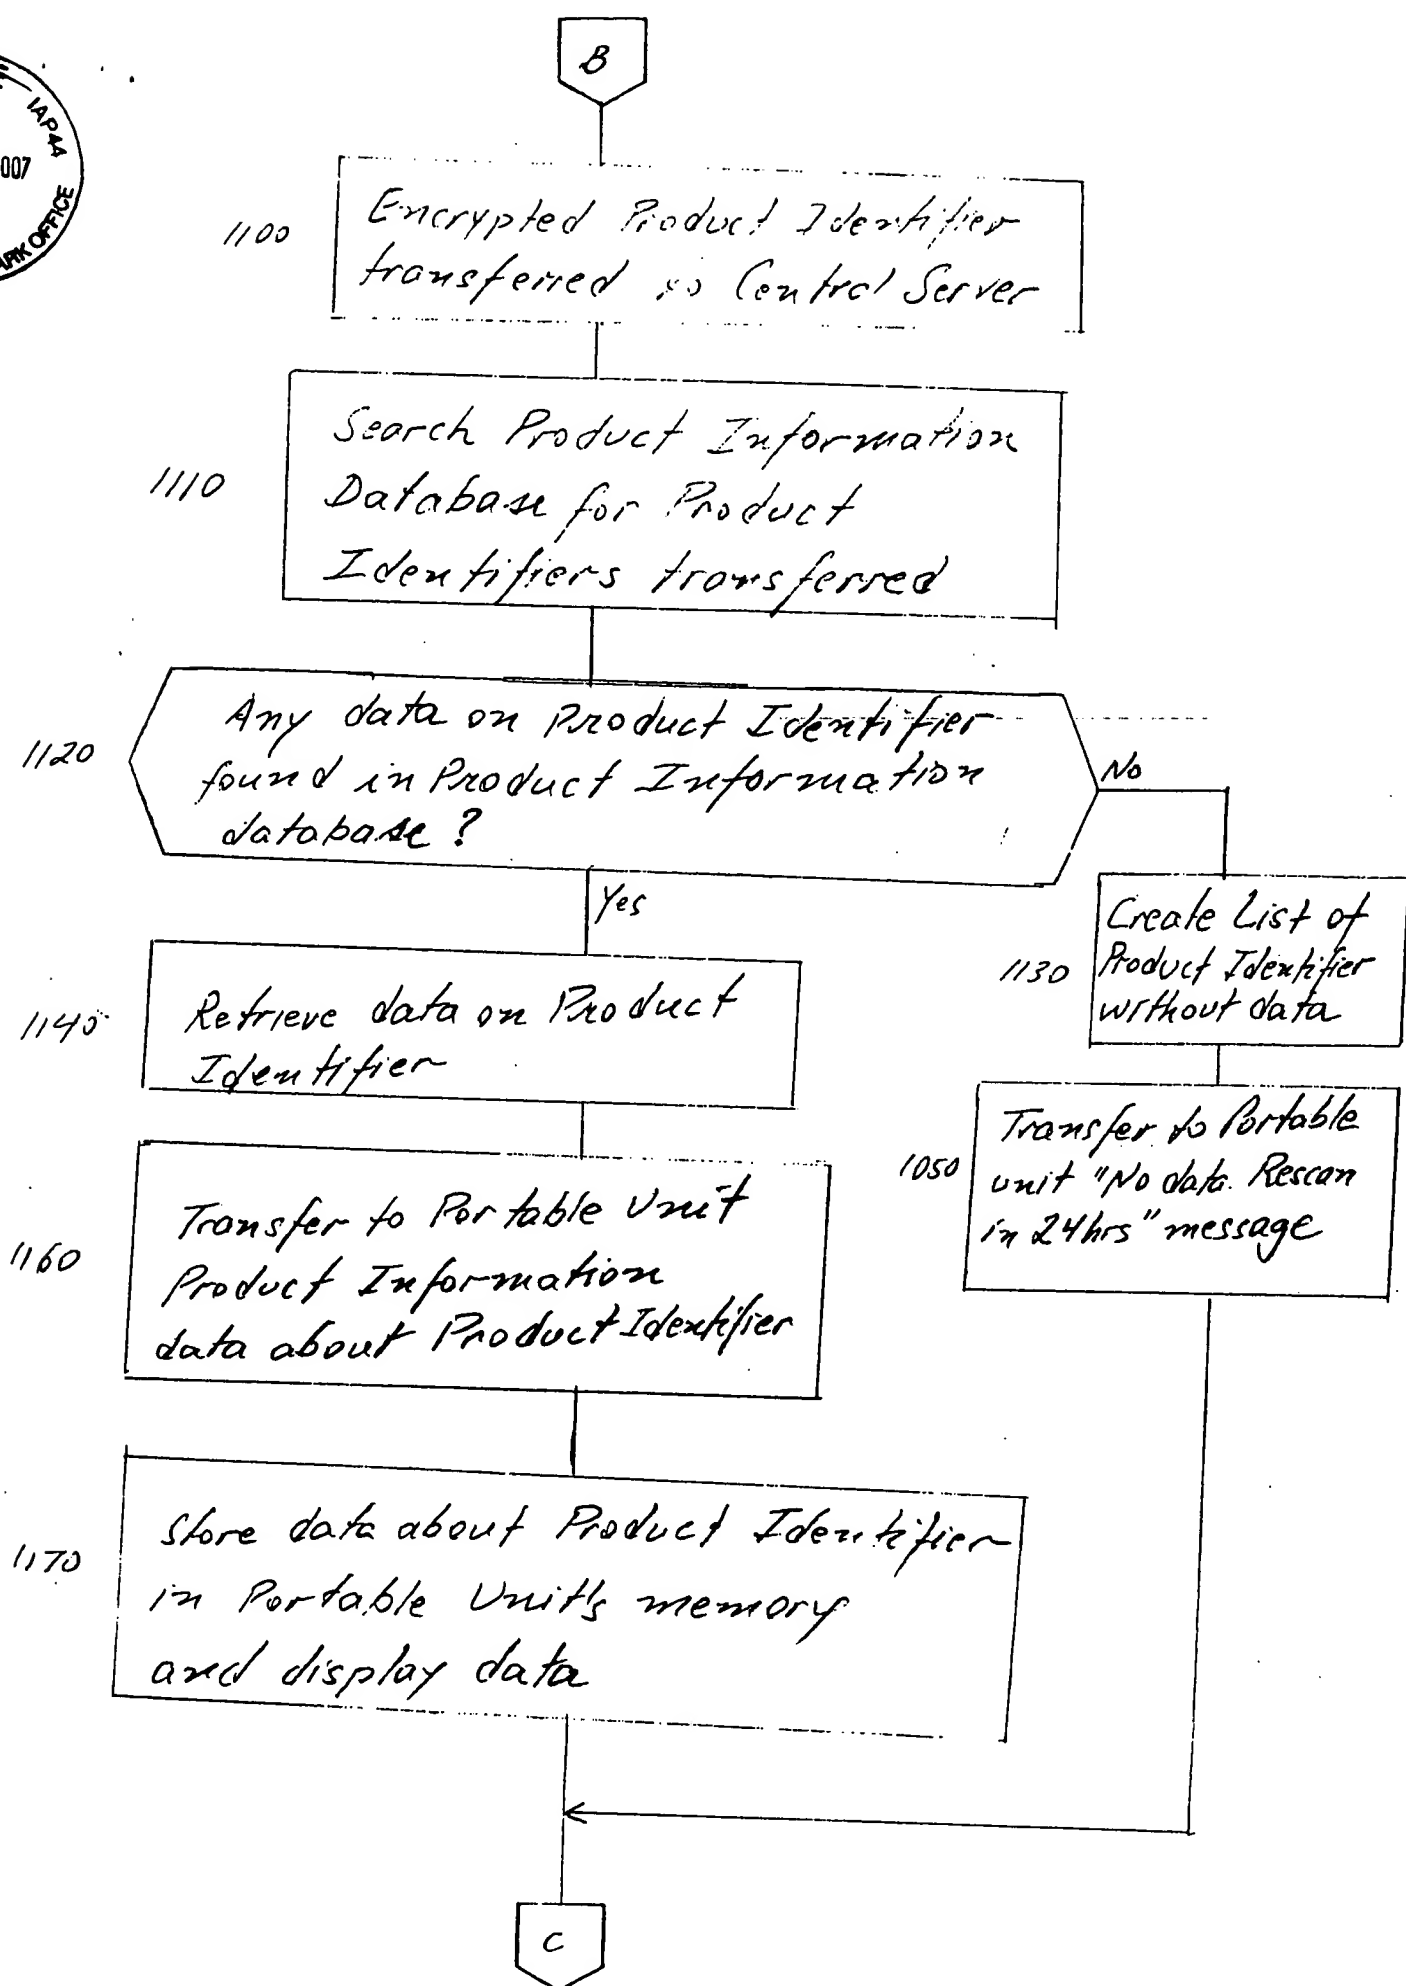 IAP44
007
ARK OFFICE
B
1100
Encrypted Product Identifier
transferred to Central Server
1110
Search Product Information
Database for Product
Identifiers transferred
1120
Any data on Product Identifier
found in Product Information
database?
No
Yes
1130
Create List of
Product Identifier
without data
1140
Retrieve data on Product
Identifier
1050
Transfer to Portable
unit "No data. Rescan
in 24hrs" message
1160
Transfer to Portable Unit
Product Information
data about Product Identifier
1170
Store data about Product Identifier
in Portable Unit's memory
and display data
C